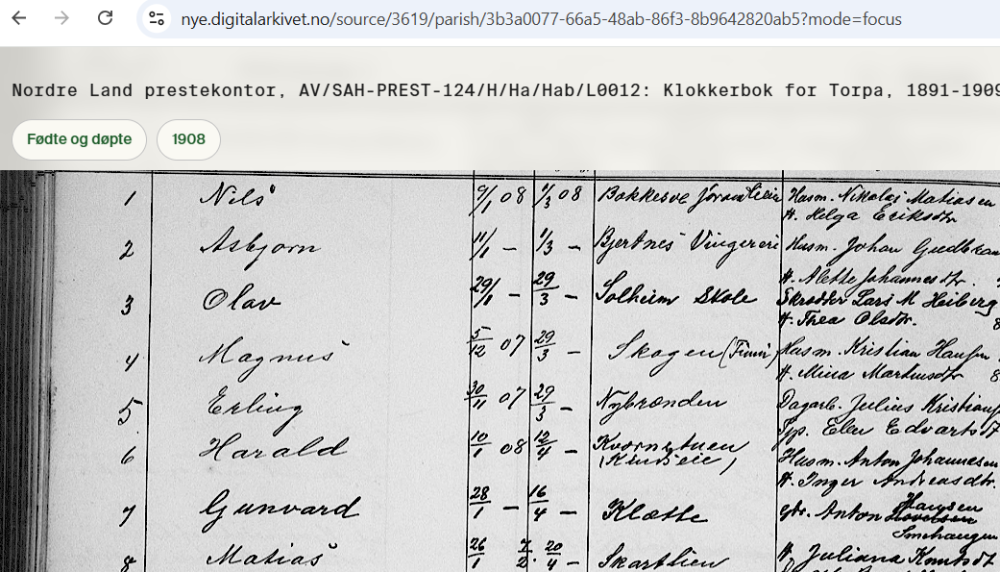 nye.digitalarkivet.no/source/3619/parish/3b3a0077-66a5-48ab-86f3-8b9642820ab5?mode=focus
Nordre Land prestekontor, AV/SAH-PREST-124/H/Ha/Hab/L0012: Klokkerbok for Torpa, 1891-1909
Fødte og døpte 1908
1 Nils 9/1 08 1/3 08 Bakkerve Husm. Nikolai Matiasen
H. Helga Eriksdtr
2 Asbjørn 11/1 – 1/3 – Bjertnes Husm. Johan
H. Alette Johannesdtr
3 Olav 29/1 – 29/3 – Solheim Skole Skrædder Lars M. Heiberg
H. Thea Olsdtr.
4 Magnus 5/12 07 29/3 – Skogen Husm. Kristian
H. Mina Martinsdtr 8
5 Erling 30/11 07 29/3 – Nybrænden Dagarb. Julius Kristians
Elen Edvartsdt
6 Harald 10/1 08 12/4 – Husm. Anton Johannesen
H. Inger Andreasdtr.
7 Gunvard 28/1 – 16/4 – Klætte gbr. Anton Hansen
Smehaugen
8 Matias 26/1 20/4 – Skartlien H. Juliana Knutsdt